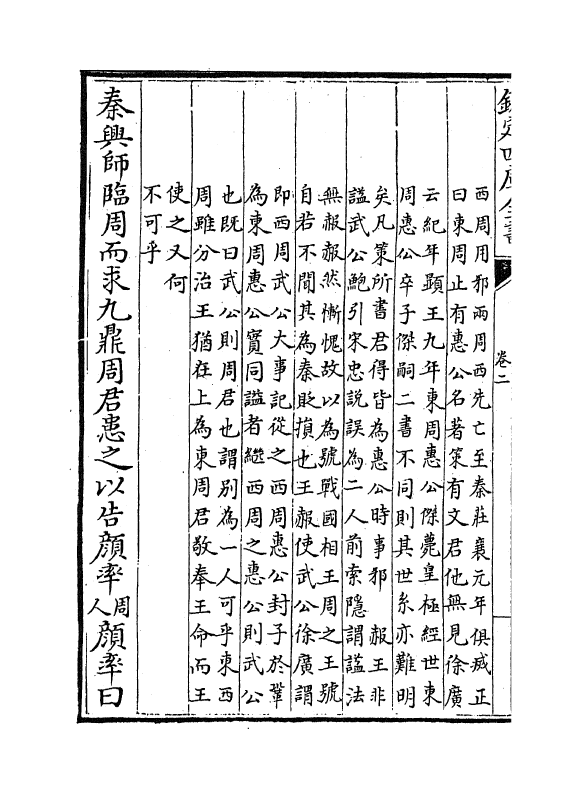 欽定四庫全書
卷二
西周用邪兩周西先亡至秦莊襄元年俱威正
曰東周止有惠公名著策有文君他無見徐廣
云紀年顯王九年東周惠公傑薨皇極經世東
周惠公卒子傑嗣二書不同則其世系亦難明
矣凡策所書君得皆為惠公時事邪 赧王非
謚武公鮑引宋忠說誤為二人前索隱謂謚法
無赧赧然慚愧故以為號戰國相王周之王號
自若不間其為秦貶損也王赧使武公徐廣謂
即西周武公大事記從之西周惠公封子於鞏
為東周惠公實同謚者繼西周之惠公則武公
也既曰武公則周君也謂別為一人可乎東西
周雖分治王猶在上為東周君敬奉王命而王
使之又何
不可乎
秦興師臨周而求九鼎周君患之以告顏率周人顏率曰